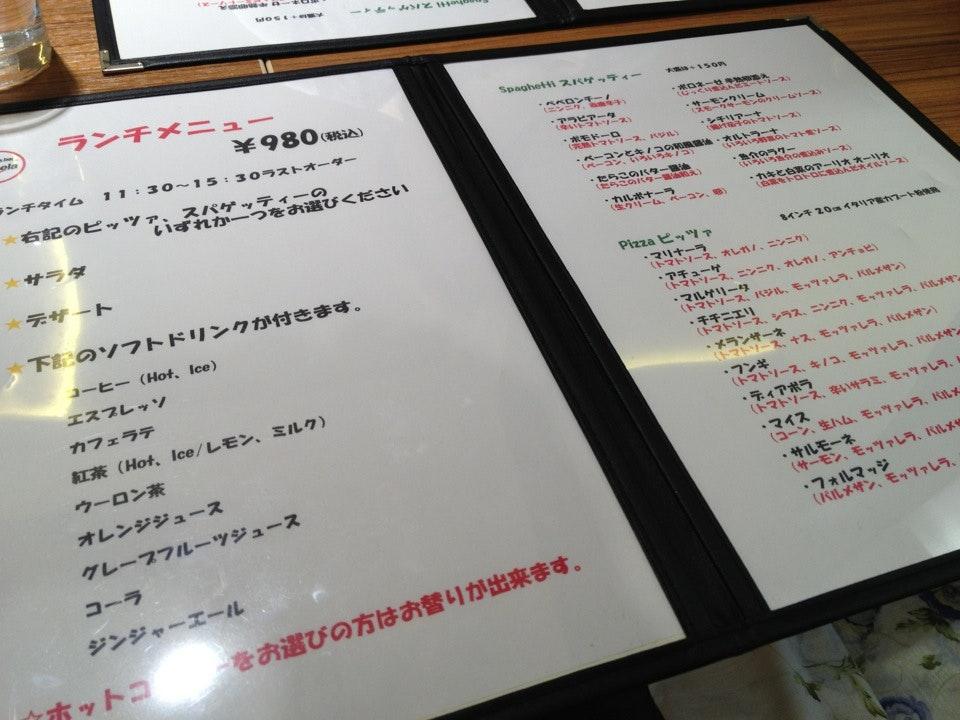 ランチメニュー
¥980(税込)
ランチタイム 11:30～15:30ラストオーダー
★右記のピッツァ、スパゲッティーの
いずれか一つをお選びください
★サラダ
★デザート
★下記のソフトドリンクが付きます。
コーヒー (Hot、Ice)
エスプレッソ
カフェラテ
紅茶 (Hot、Ice/レモン、ミルク)
ウーロン茶
オレンジジュース
グレープフルーツジュース
コーラ
ジンジャーエール
☆ホットコーヒーをお選びの方はお替りが出来ます。
Spaghetti スパゲッティー 大盛は+150円
・ペペロンチーノ
(ニンニク、唐辛子)
・アラビアータ
(辛いトマトソース)
・ポモドーロ
(完熟トマトソース、バジル)
・ベーコンとキノコの和風醤油
(ベーコン、いろいろキノコ)
・たらこのバター醤油
(たらこのバター醤油和え)
・カルボナーラ
(生クリーム、ベーコン、卵)
・ボロネーゼ
(じっくり煮込んだミートソース)
・サーモンクリーム
(スモークサーモンのクリームソース)
・シチリアーナ
(揚げ茄子のトマトソース)
・オルトラーナ
(いろいろ野菜のトマト煮ソース)
・魚介のラグー
(いろいろ魚介の煮込みソース)
・カキと白菜のアーリオ オーリオ
(白菜をトロトロに煮込んだオイルソース)
Pizza ピッツァ 8インチ 20cm イタリア産カプート粉使用
・マリナーラ
(トマトソース、オレガノ、ニンニク)
・アチューゲ
(トマトソース、ニンニク、オレガノ、アンチョビ)
・マルゲリータ
(トマトソース、バジル、モッツァレラ、パルメザン)
・チチニエリ
(トマトソース、シラス、ニンニク、モッツァレラ、パルメザン)
・メランザーネ
(トマトソース、ナス、モッツァレラ、パルメザン)
・フンギ
(トマトソース、キノコ、モッツァレラ、パルメザン)
・ディアボラ
(トマトソース、辛いサラミ、モッツァレラ、
・マイス
(コーン、生ハム、モッツァレラ、パルメザン
・サルモーネ
(サーモン、モッツァレラ、パルメ
・フォルマッジ
(パルメザン、モッツァレラ、